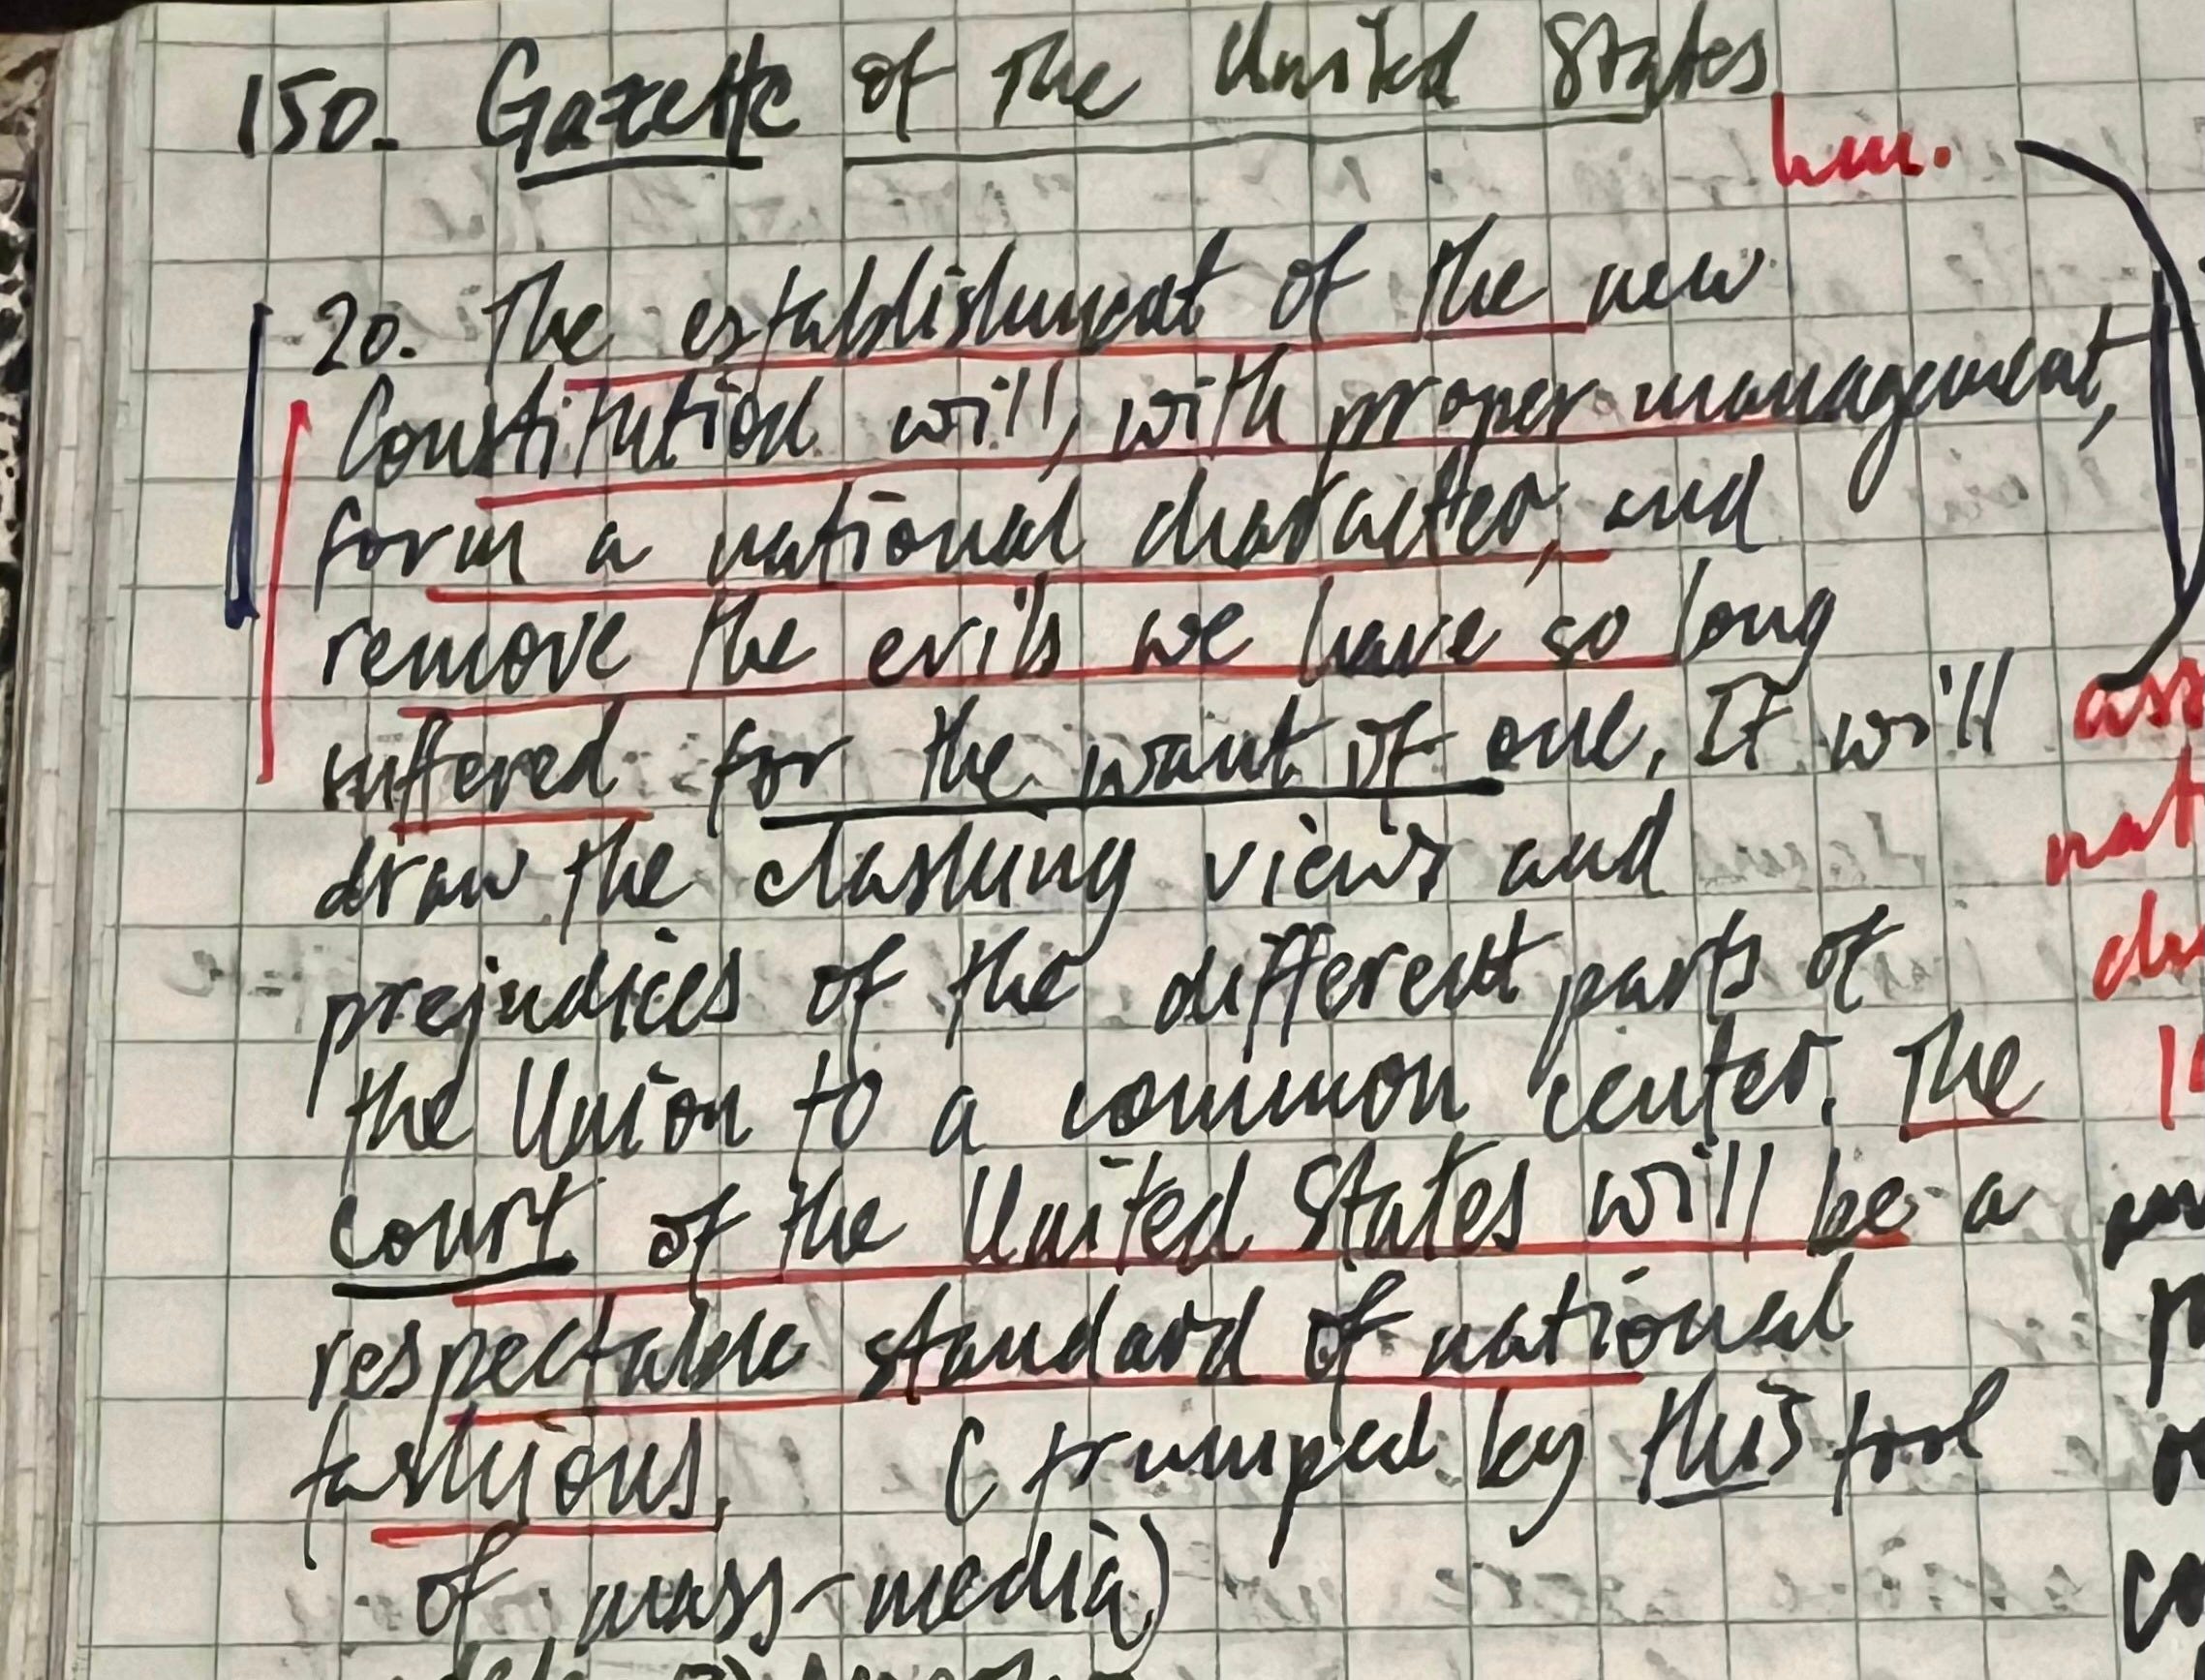 150. Gazette of the United States
hm.
20. The establishment of the new
Constitution will, with proper management,
form a national character, and
remove the evils we have so long
suffered for the want of one. It will
draw the clashing views and
prejudices of the different parts of
the Union to a common center. The
court of the United States will be a
respectable standard of national
fashions. (trumped by this tool
of mass-media)